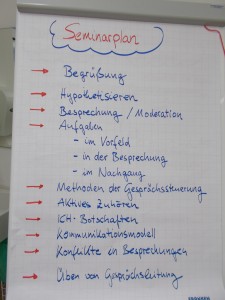 Seminarplan
→ Begrüßung
→ Hypothetisieren
→ Besprechung / Moderation
→ Aufgaben
- im Vorfeld
- in der Besprechung
- im Nachgang
→ Methoden der Gesprächssteuerung
→ Aktives Zuhören
→ ICH-Botschaften
→ Kommunikationsmodell
→ Konflikte in Besprechungen
→ Üben von Gesprächsleitung